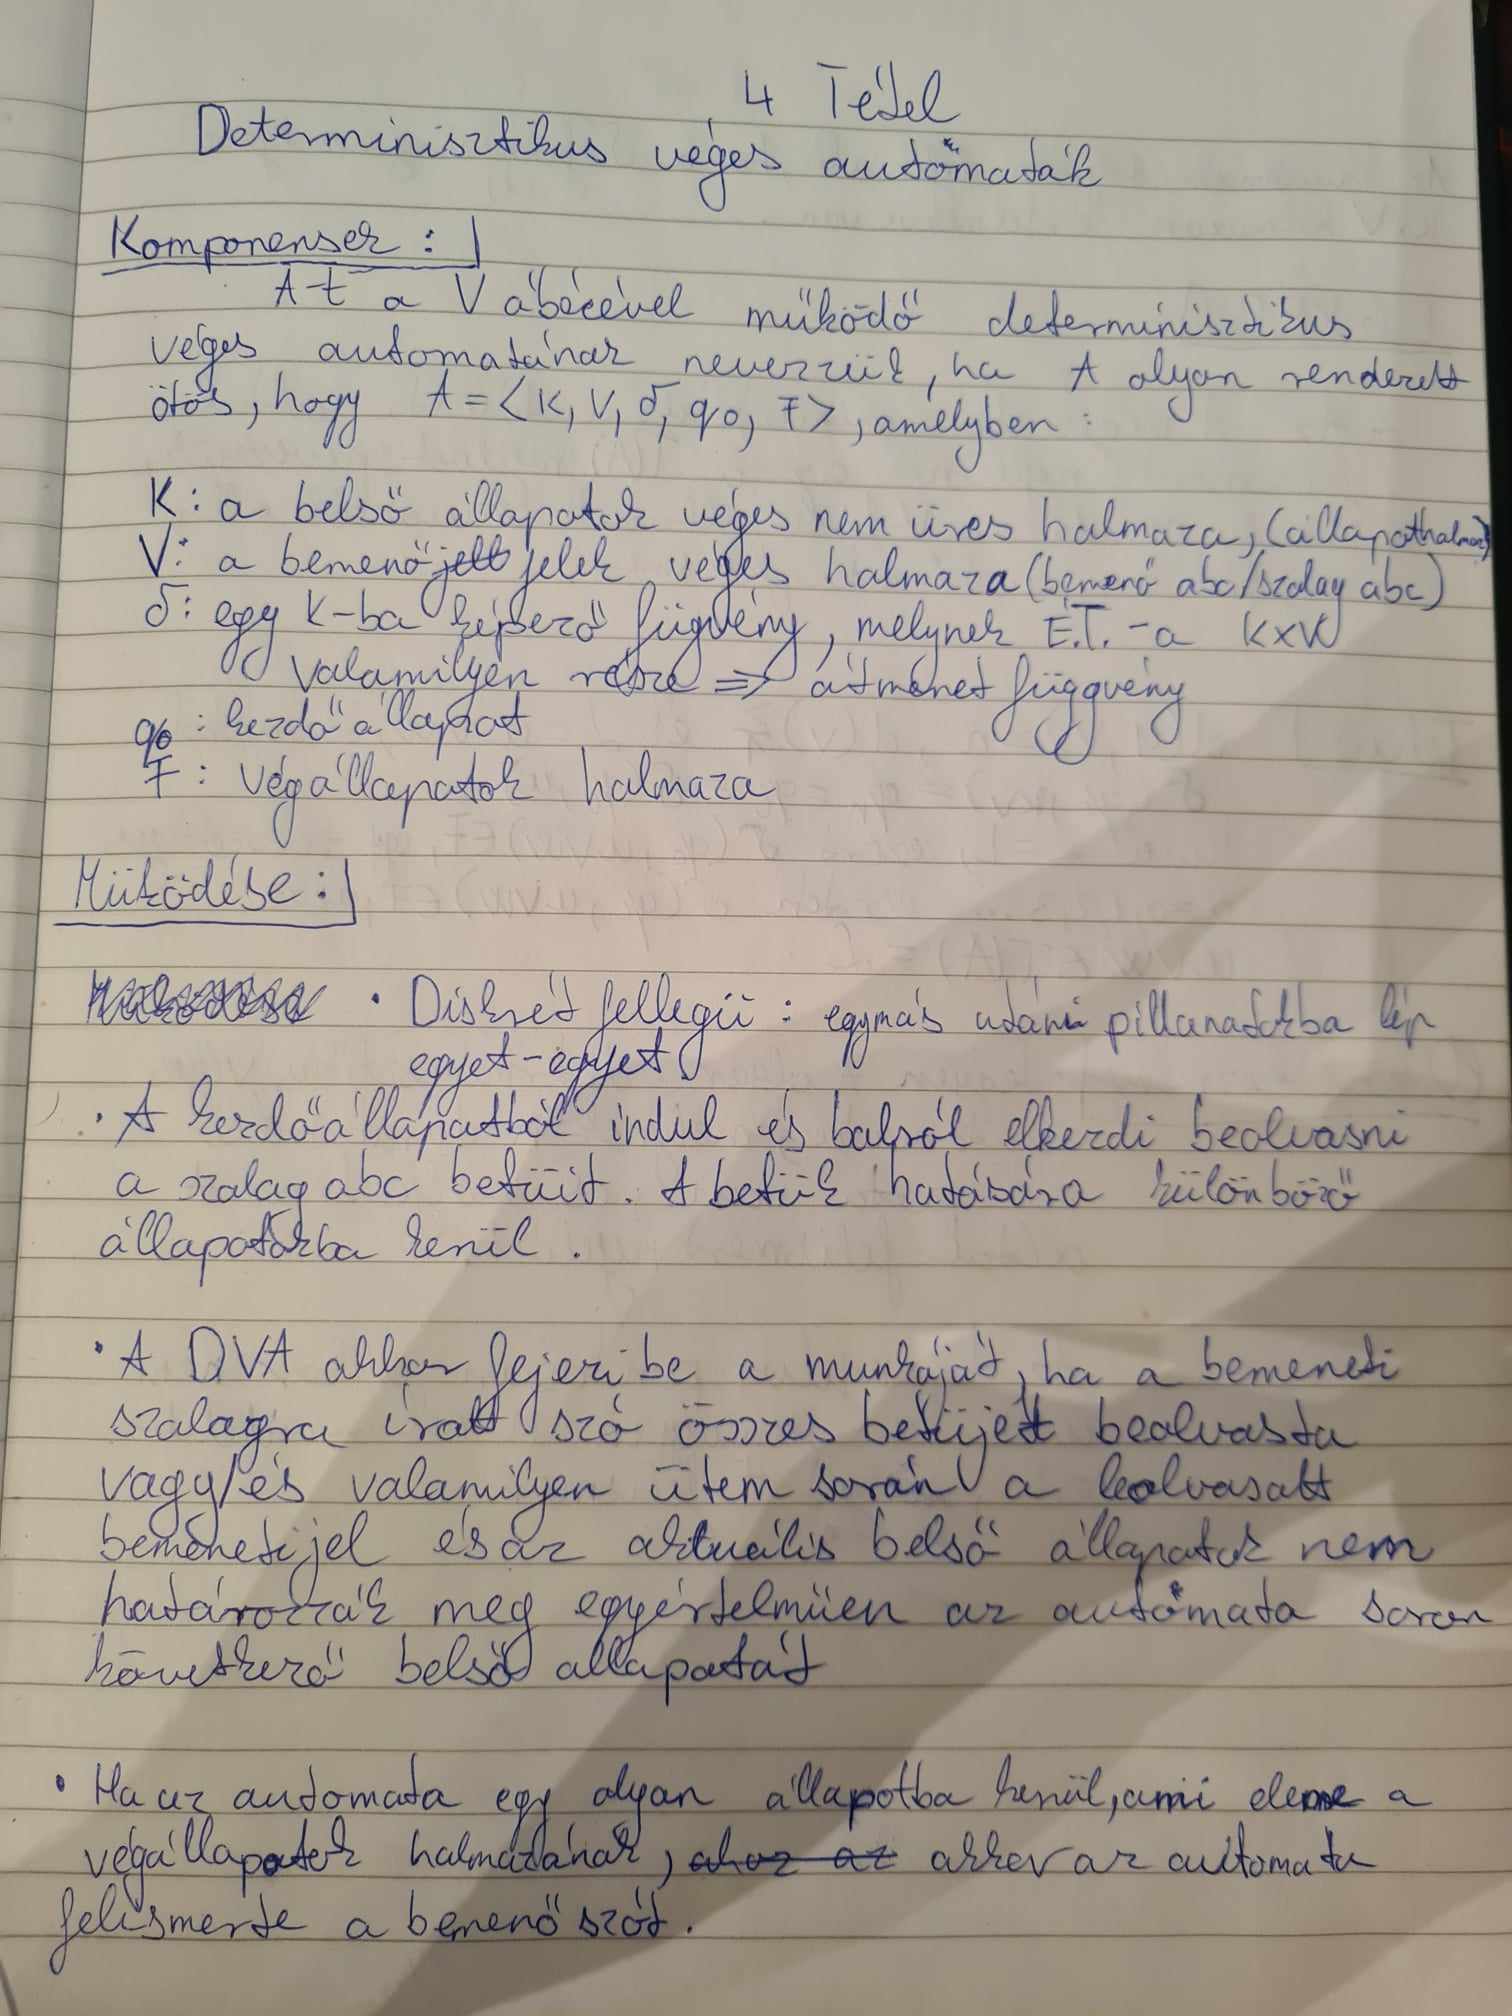 4 Tétel
Determinisztikus véges automaták
Komponensek :
A-t a V ábécével működő determinisztikus
véges automatának nevezzük, ha A olyan rendezett
ötös, hogy A = <K, V, δ, q0, F>, amelyben :
K : a belső állapotok véges nem üres halmaza, (állapothalmaz)
V : a bemenő jelek véges halmaza (bemenő abc/szalag abc)
δ : egy K-ba képező függvény, melynek É.T.-a K×V
valamilyen része => átmenet függvény
q0 : kezdő állapot
F : végállapotok halmaza
Működése :
• Diskrét jellegű : egymás utáni pillanatokba lép
egyet-egyet.
• A kezdőállapotból indul és balról elkezdi beolvasni
a szalag abc betűit. A betűk hatására különböző
állapotokba kerül.
• A DVA akkor fejezi be a munkáját, ha a bemeneti
szalagra íratt szó összes betűjét beolvasta
vagy/és valamilyen ütem során a beolvasott
bemeneti jel és az aktuális belső állapotok nem
határozzák meg egyértelműen az automata soron
következő belső állapotát
• Ha az automata egy olyan állapotba kerül, ami eleme a
végállapotok halmazának, ahoz az akkor az automata
felismerte a bemenő szót.